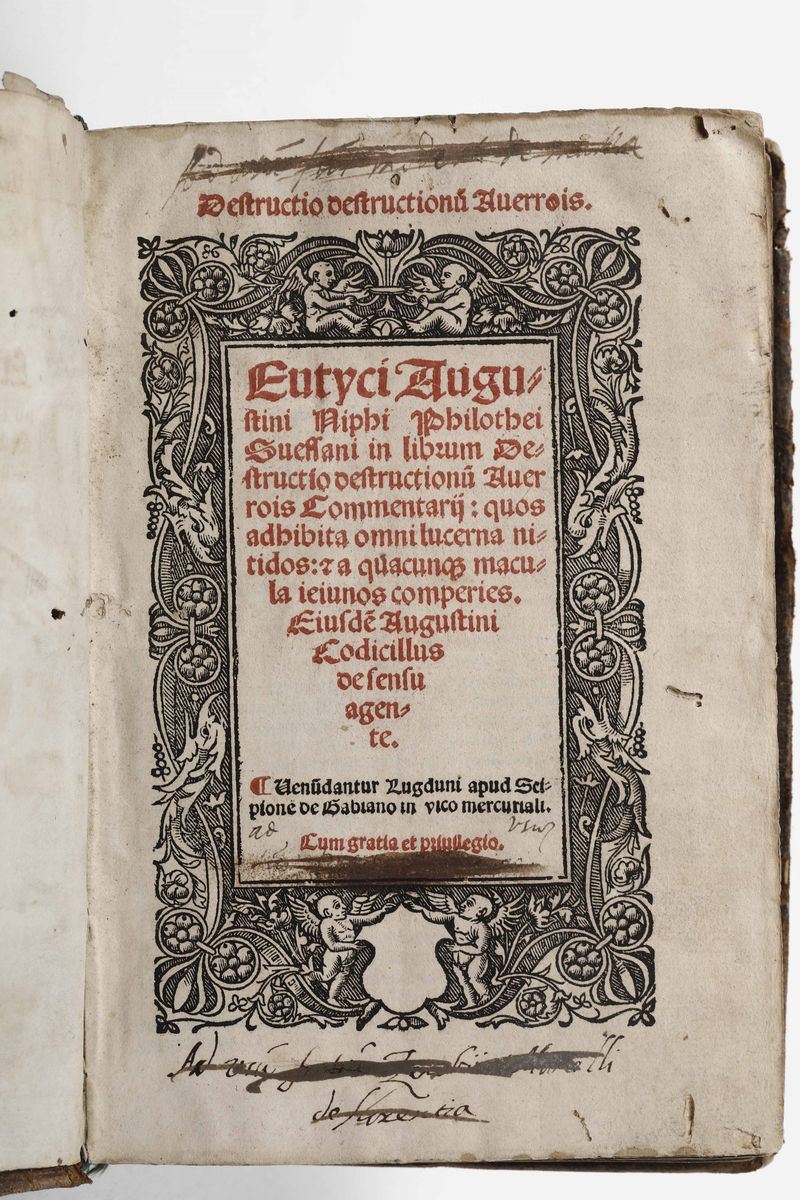 Destructio destructionũ Auerrois.
Eutyci Augu-
stini Niphi Philothei
Suessani in librum De-
structio destructionũ Auer
rois Commentarij : quos
adhibita omni lucerna ni-
tidos: ⁊ a quacunqꝫ macu-
la ieiunos comperies.
Eiusdẽ Augustini
Codicillus
de sensu
agen-
te.
¶ Venũdantur Lugduni apud Sci-
pionẽ de Gabiano in vico mercuriali.
ad
Cum gratia et priuilegio.
Ad
de florẽntia